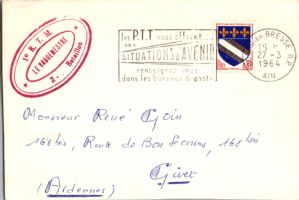 1e R.T.M.
LE VAGUEMESTRE
2e Bataillon
les P.T.T. vous offrent...
DES
SITUATIONS D'AVENIR
renseignez-vous
dans les bureaux de poste
BRESSE R.P.
15 H
27-3
1964
AIN
Monsieur René Goin
168 bis, Route de Bon Secours, 168 bis
Givet
(Ardennes)